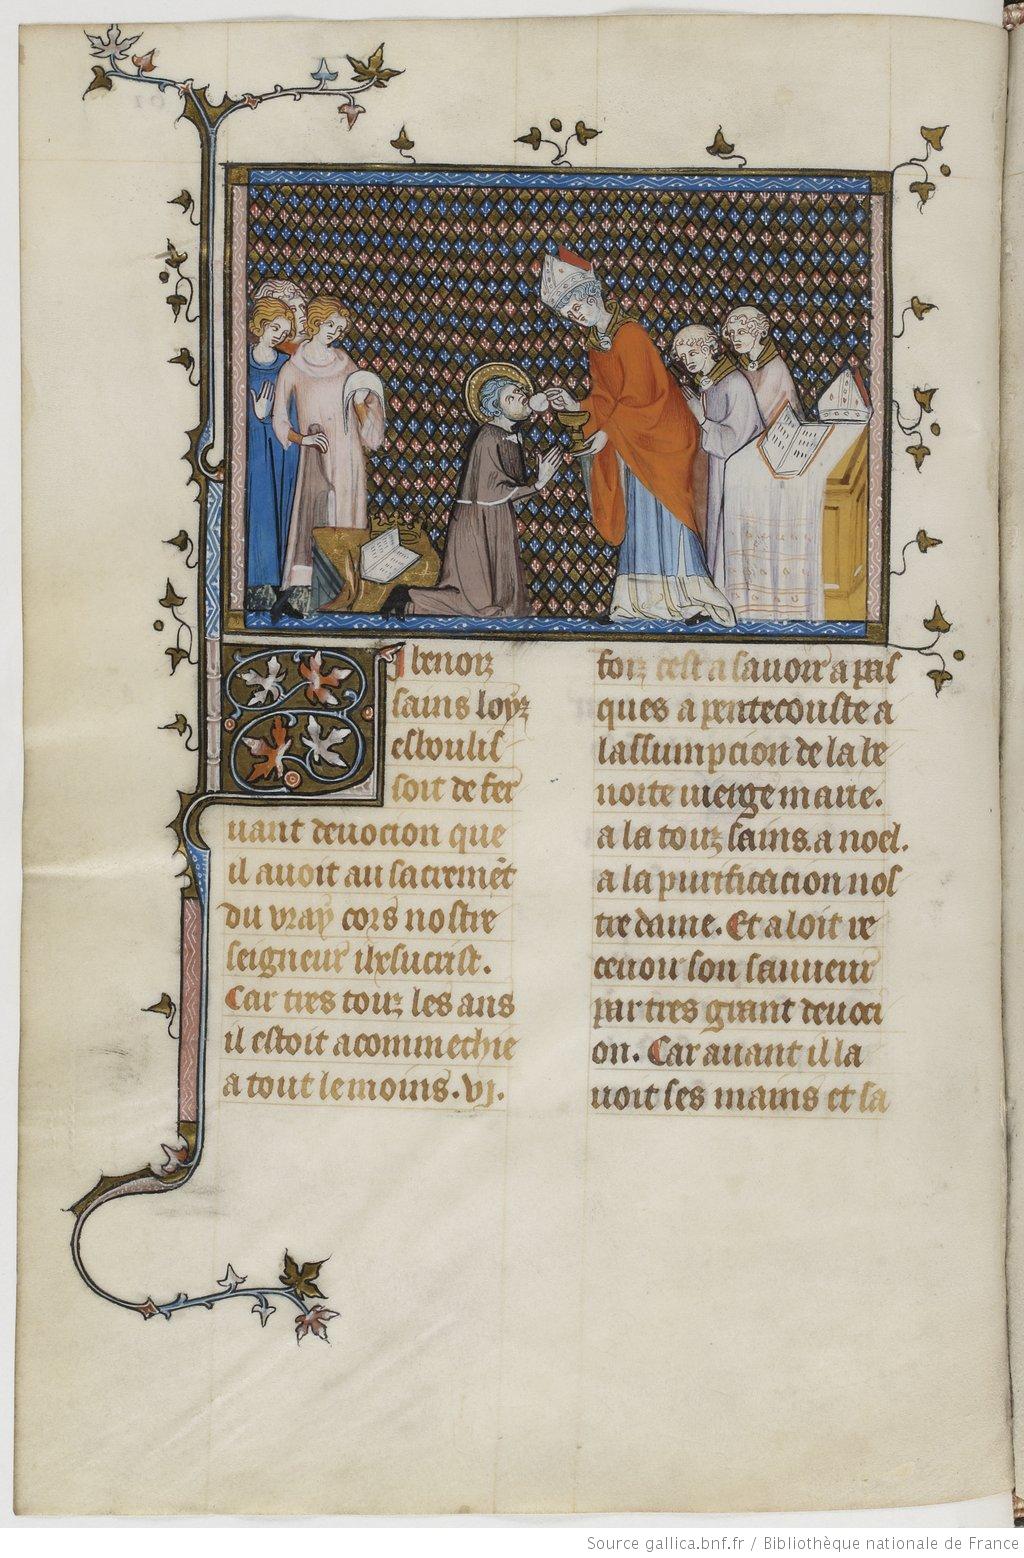 Li benoiz
sains loys
esboulis
soit de fer
uant deuocion que
il auoit au sacremēt
du vray cors nostre
seigneur ihesucrist.
Car tres touz les ans
il estoit acommechie
a tout le moins .vj.
foiz cest a sauoir a pas
ques a penthecouste a
lassumpcion de la be
noite uierge marie.
a la touz sains. a noel.
a la purificacion nos
tre dame. Et aloit re
ceuoir son sauueur
par tres grant deuoci
on. Car auant il la
uoit ses mains et sa
Source gallica.bnf.fr / Bibliothèque nationale de France